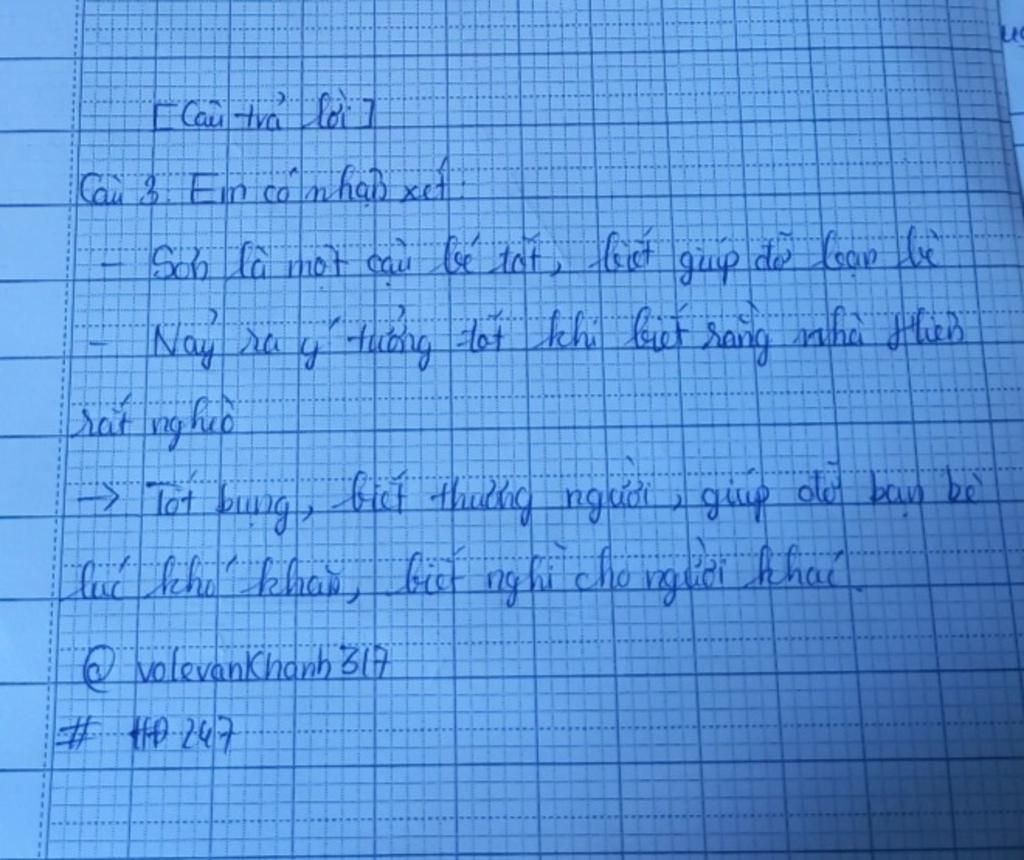 [Câu trả lời]
Câu 3: Em có nhận xét:
- Sơn là một cậu bé tốt, biết giúp đỡ bạn bè
- Nảy ra ý tưởng tốt khi biết rằng nhà Hiên
rất nghèo
→ Tốt bụng, biết thương người, giúp đỡ bạn bè
lúc khó khăn, biết nghĩ cho người khác.
@ volevankhanh317
# HĐ 247